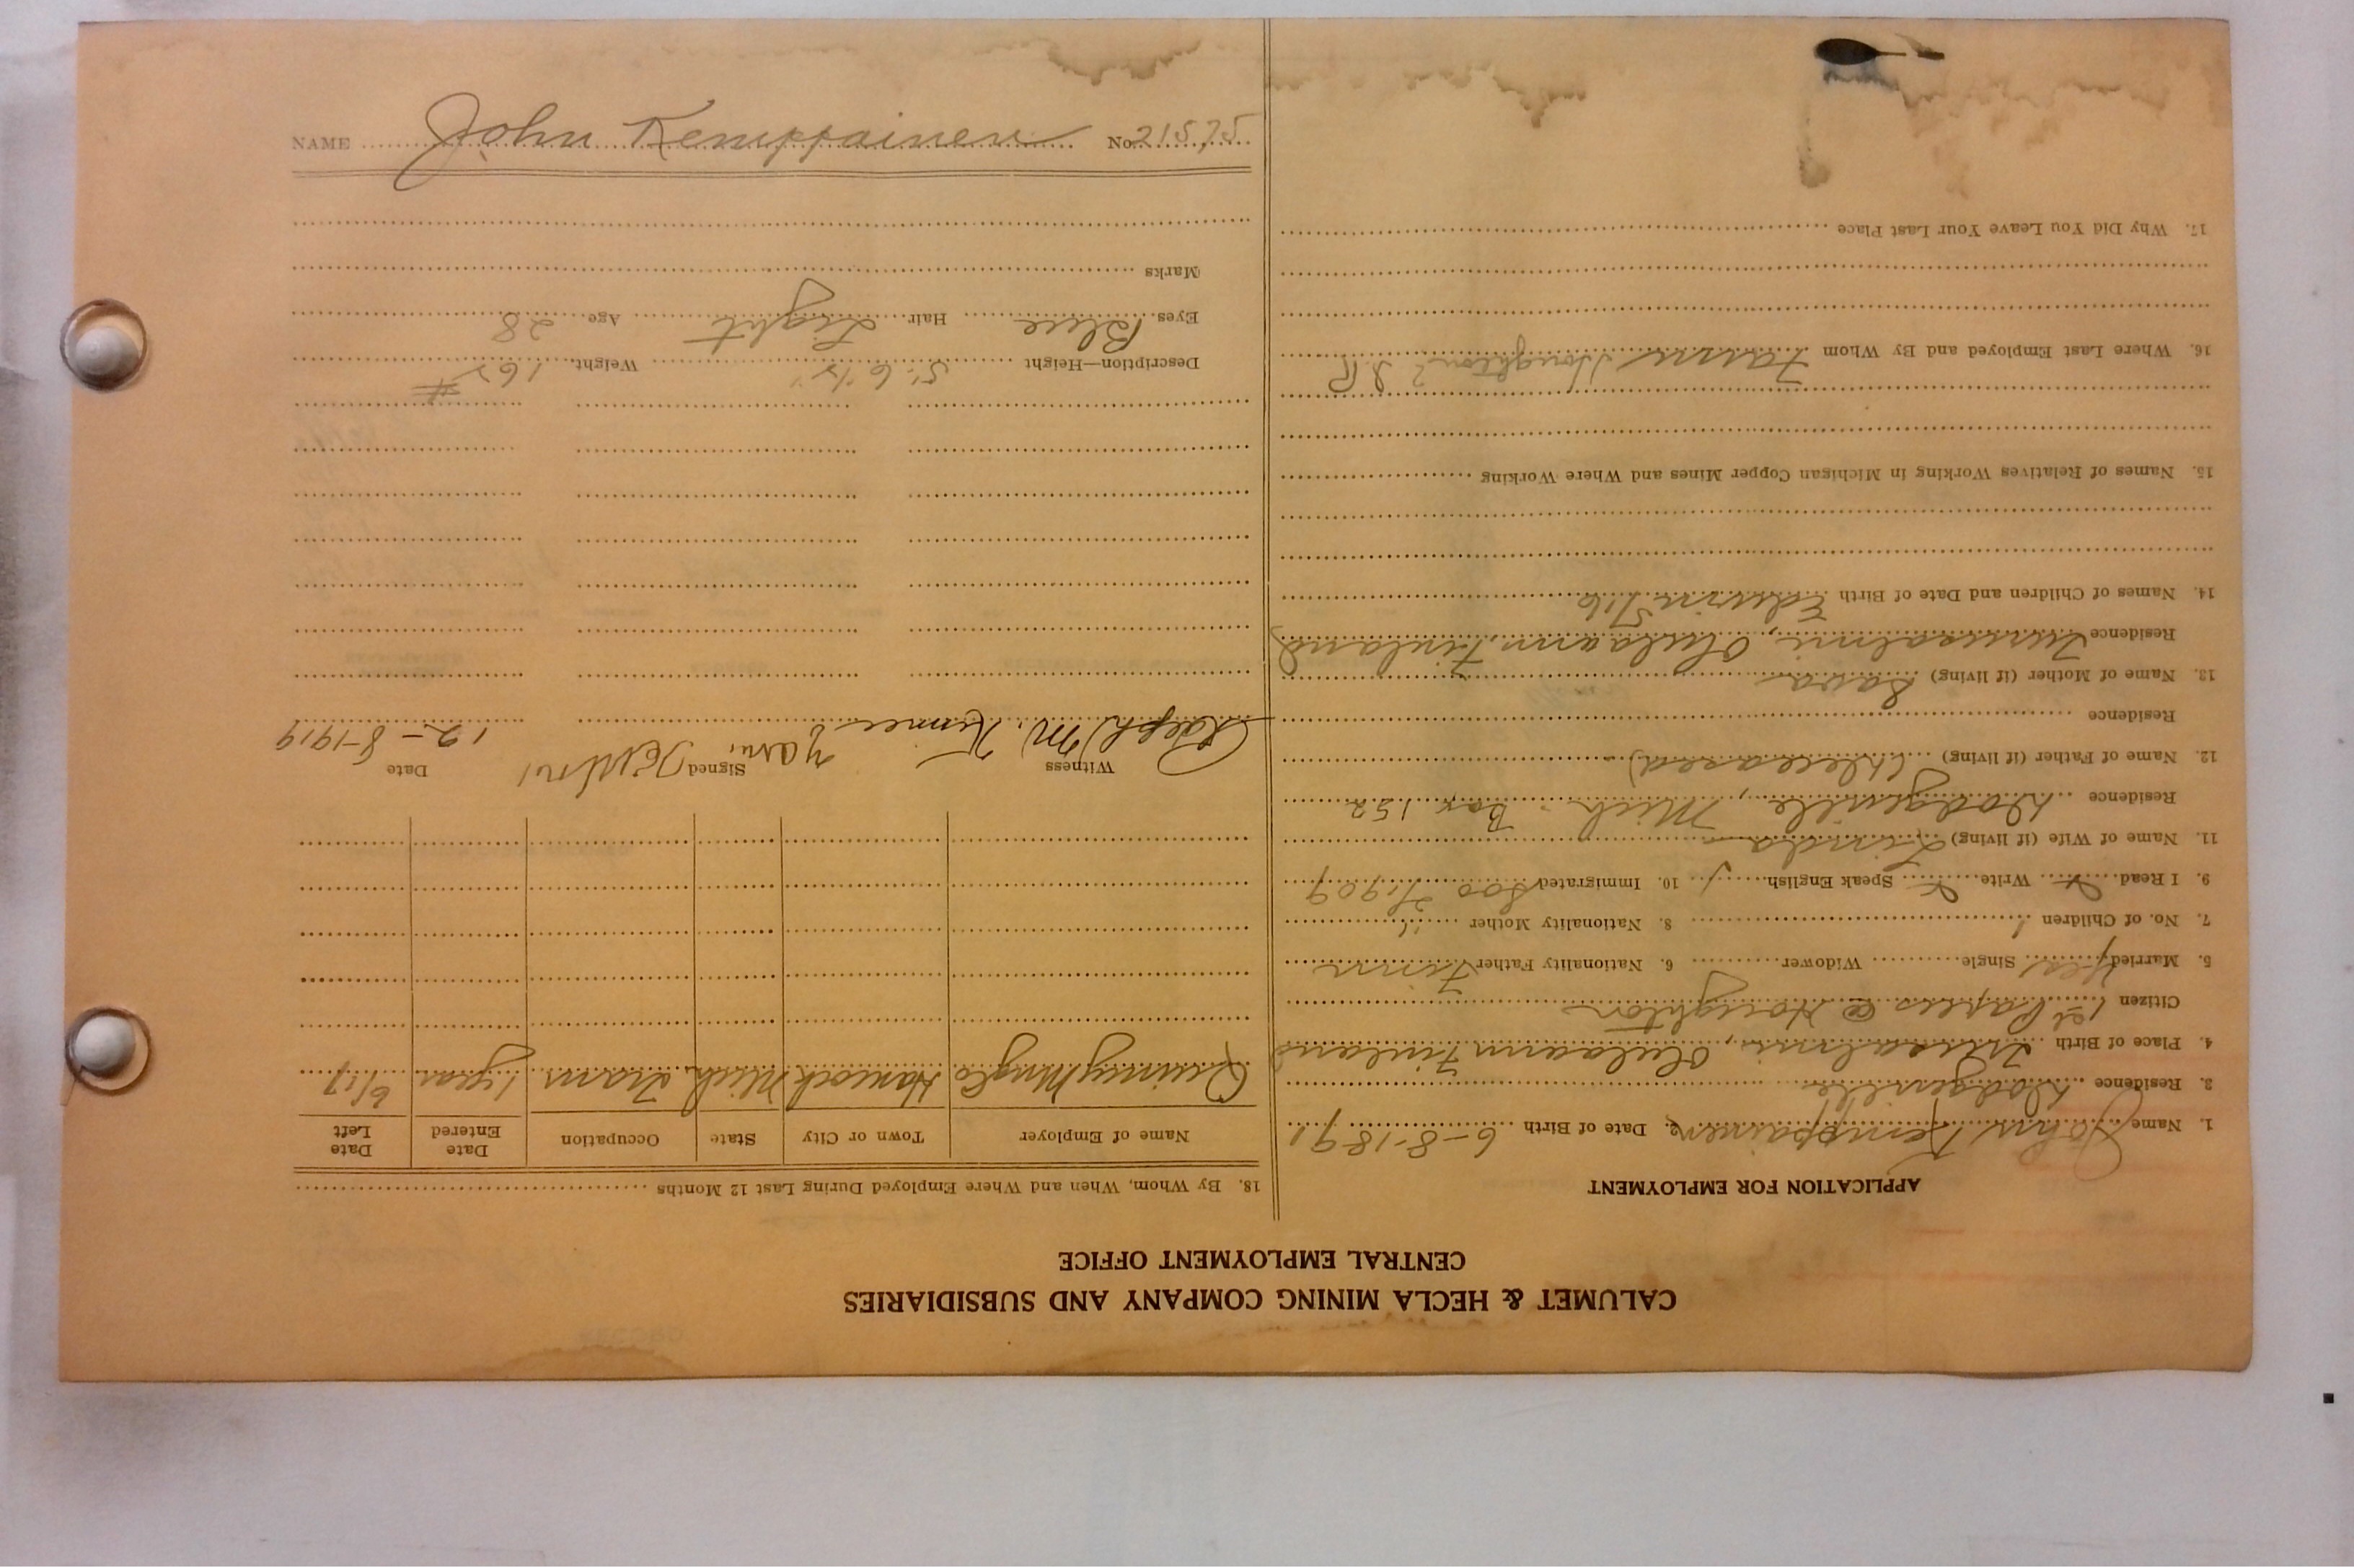 CALUMET & HECLA MINING COMPANY AND SUBSIDIARIES
CENTRAL EMPLOYMENT OFFICE
APPLICATION FOR EMPLOYMENT
1. Name John Kemppainen 2. Date of Birth 6-8-1891
3. Residence Dodgeville
4. Place of Birth Oulaann Finland
Citizen 1st Papers @ Houghton
5. Married Yes Single Widower 6. Nationality Father Finn
7. No. of Children 1 8. Nationality Mother "
9. I Read Write Speak English 10. Immigrated 1909
11. Name of Wife (if living) Linda
Residence Dodgeville, Mich. Box 152
12. Name of Father (if living) (deceased)
Residence
13. Name of Mother (if living)
Residence Oulaann, Finland
14. Names of Children and Date of Birth Edwin
15. Names of Relatives Working in Michigan Copper Mines and Where Working
16. Where Last Employed and By Whom Farm Houghton
17. Why Did You Leave Your Last Place
18. By Whom, When and Where Employed During Last 12 Months
Name of Employer Town or City State Occupation Date Entered Date Left
Quincy Mng Co Hancock Mich. Tram 1 year 6/17
Witness Signed Date
Ralph M. 12-8-1919
Description—Height 5' 6 1/2" Weight 165 #
Eyes Blue Hair Light Age 28
Marks
NAME John Kemppainen No. 21575